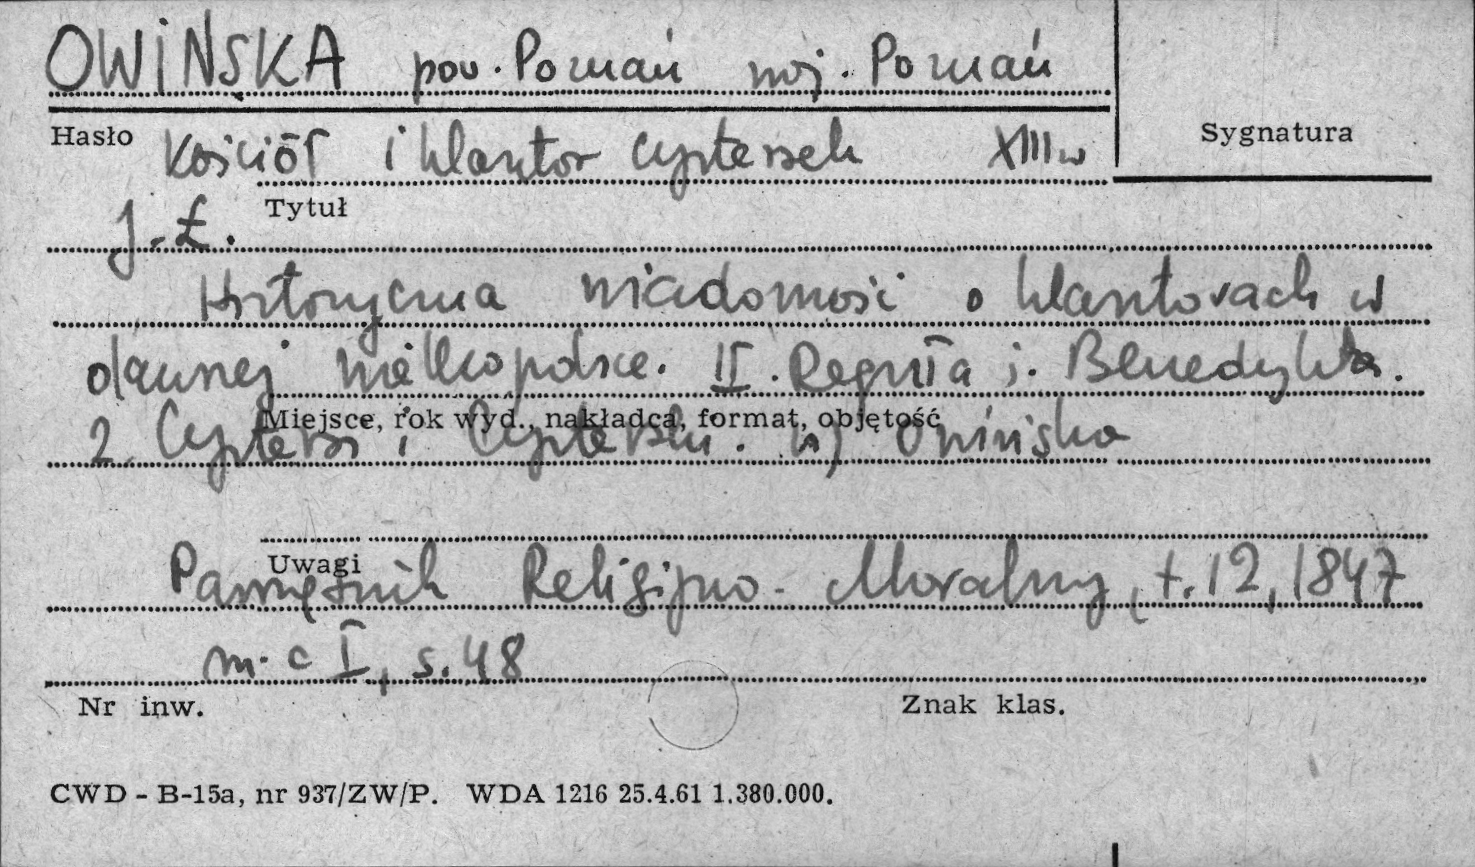 OWIŃSKA pow. Poznań woj. Poznań
Hasło
Sygnatura
Kościół i klasztor cysterek XIII w
Tytuł
J. Ł.
Historyczna wiadomość o klasztorach w
dawnej wielkopolsce. II. Reguła ś. Benedykta.
Miejsce, rok wyd., nakładca, format, objętość
2. Cystersi i Cysterski. h) Owińska
Uwagi
Pamiętnik Religijno-Moralny, t. 12, 1847
m-c I, s. 48
Nr inw.
Znak klas.
CWD - B-15a, nr 937/ZW/P. WDA 1216 25.4.61 1.380.000.